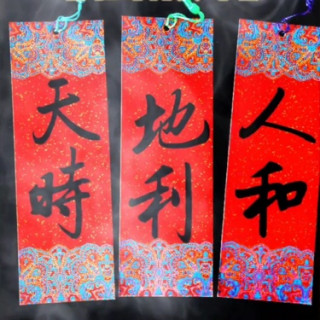 天時
地利
人和